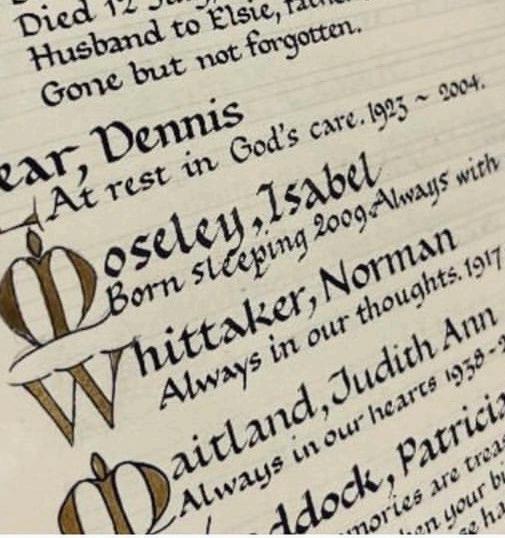 Died 12
Husband to Elsie,
Gone but not forgotten.
ear, Dennis
At rest in God's care. 1923 ~ 2004.
Moseley, Isabel
Born sleeping 2009. Always with
Whittaker, Norman
Always in our thoughts. 1917
Maitland, Judith Ann
Always in our hearts 1938-2
ddock, Patricia
mories are trea
en your bi